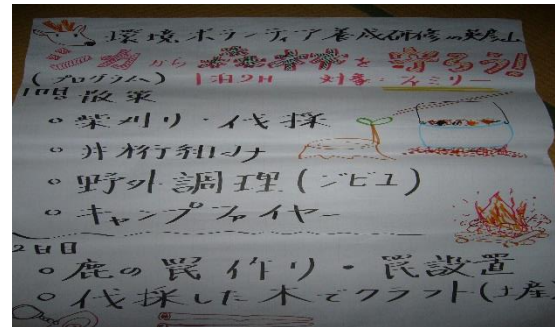 環境ボランティア養成研修 in 英彦山
シカから を守ろう!
(プログラム) 1泊2日 対象:ファミリー
1日目 散策
○柴刈り・伐採
○野外調理(ジビエ)
○キャンプファイヤー
2日目
○鹿の罠作り・罠設置
○伐採した木でクラフト(土産)